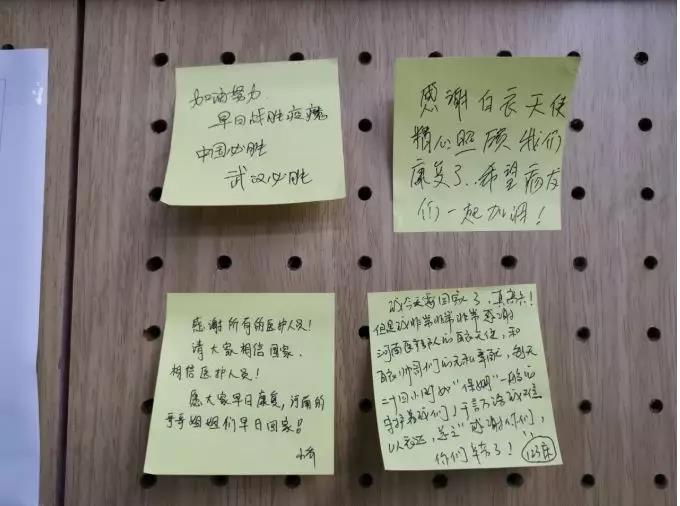 加油努力
早日战胜疫魔
中国必胜
武汉必胜
感谢白衣天使
精心照顾我们
康复了..希望病友
们一起加油!
感谢所有的医护人员!
请大家相信国家.
相信医护人员!
愿大家早日康复,河南的
哥哥姐姐们早日回家!!
我今天要回家了,真高兴!
但是我非常非常非常感谢
河南医疗队的白衣天使,和
白衣帅哥们的无私奉献,每天
二十四小时如"保姆"一般的
守护着我们,千言万语我难
以表达,总之"感谢你们,
你们辛苦了!
123床